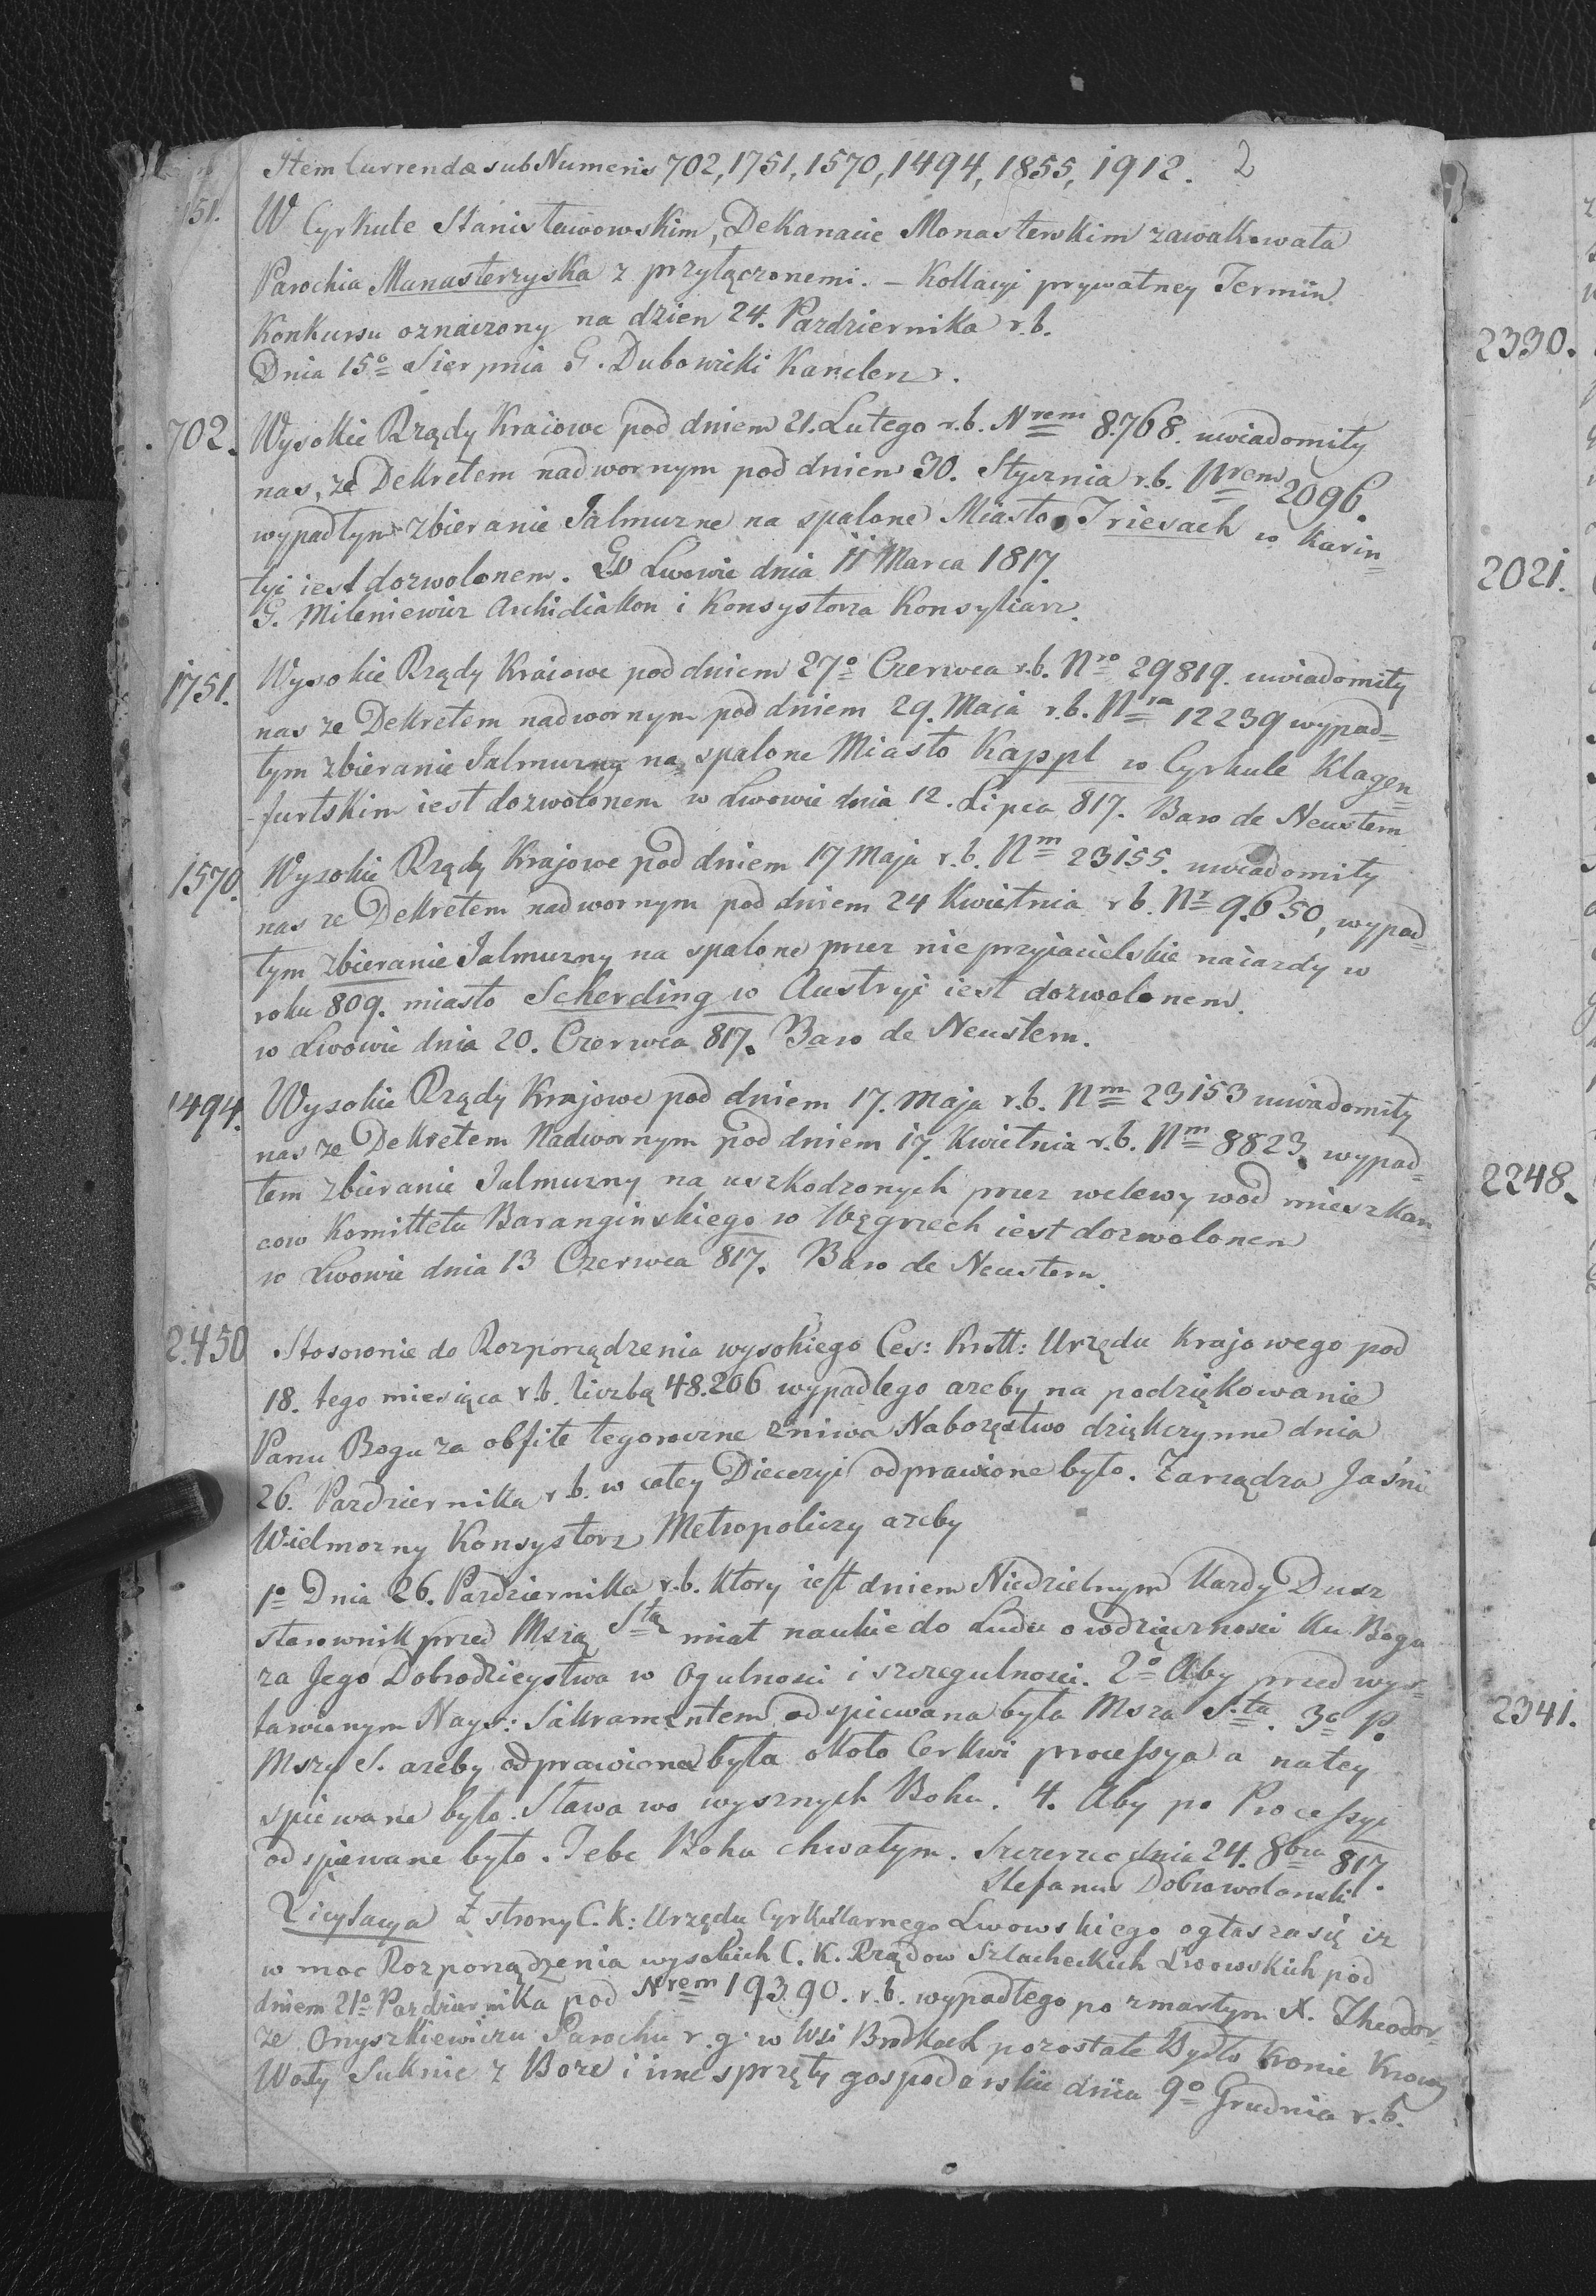 Item Currendæ sub Numeris 702, 1751, 1570, 1494, 1855, 1912. 2
151. W Cyrkule Stanisławowskim, Dekanacie Monasterskim zawakowała
Parochia Manasterzyska z przyłączonemi. – Kollacyi prywatney Termin
Konkursu oznaczony na dzien 24. Pazdziernika r.b.
Dnia 15º Sierpnia G. Dubowicki Kanclerz.
702. Wysokie Rządy Kraiowe pod dniem 21. Lutego r.b. Nrem 8.768. uwiadomiły
nas, ze Dekretem nadwornym pod dniem 30. Stycznia r.b. Nrem 2096.
wypadłym zbieranie Jalmuzne na spalone Miasto Friesach w Karin=
tyi iest dozwolonem. W Lwowie dnia 11 Marca 1817.
G. Mileniewicz Archidiakon i Konsystorza Konsyliarz.
1751. Wysokie Rządy Kraiowe pod dniem 27º Czerwca r.b. Nro 29819. uwiadomiły
nas ze Dekretem nadwornym pod dniem 29. Maia r.b. Nra 12239 wypad=
łym zbieranie Jalmuzny na spalone Miasto Kappl w Cyrkule Klagen=
furtskim iest dozwolonem w Lwowie dnia 12. Lipca 817. Baro de Neustem
1570. Wysokie Rządy Krajowe pod dniem 17 Maja r.b. Nm 23155. uwiadomiły
nas ze Dekretem nadwornym pod dniem 24 Kwietnia r b. Nr 9.650, wypad=
łym zbieranie Jalmuzny na spalone przez nieprzyiacielskie naiazdy w
roku 809. miasto Scherding w Austryi iest dozwolonem.
w Lwowie dnia 20. Czerwca 817. Baro de Neustem.
1494. Wysokie Rządy Krajowe pod dniem 17. Maja r.b. Nm 23153 uwiadomiły
nas ze Dekretem Nadwornym pod dniem 17. Kwietnia r.b. Nm 8823. wypad=
łem zbieranie Jalmuzny na uszkodzonych przez welewy wod mieszkan
cow Komittetu Barangińskiego w Węgrzech iest dozwolonem
w Lwowie dnia 13 Czerwca 817. Baro de Neustern.
2.450 Stosownie do Rozporządzenia wysokiego Ces: Krolł: Urzędu Krajowego pod
18. tego miesiąca r b. liczbą 48.206 wypadłego azeby na podziękowanie
Panu Bogu za obfite tegoroczne zniwa Nabozęstwo dziękczynne dnia
26. Pazdziernika r b. w całey Diecezyi odprawione było. Zarządza Jaśnie
Wielmozny Konsystorz Metropoliczy azeby
1º Dnia 26. Pazdziernika r.b. ktory iest dniem Niedzielnym kazdy Dusz
starownik przed Mszą Stą miał naukie do Ludu o wdzięcznosci ku Bogu
za Jego Dobrodzieystwa w Ogulnosci i szczegulnosci. 2º Aby przed wys=
tawionym Nays: Sakramentem odspiewana była Msza S.ta. 3º P.
Mszy S. azeby odprawiona była około Cerkwi processya a na tey
spiewane było. Sława wo wysznych Bohu. 4. Aby po Processyi
odspiewane było. Tebe Boha chwalym. Szczerzec dnia 24. 8bra 817.
Stefanus Dobrowolanski
Licytacya Z strony C. K: Urzędu Cyrkullarnego Lwowskiego ogłasza się iz
w moc Rozporządzenia wysokich C. K. Rządow Szlacheckich Lwowskich pod
dniem 21º Pazdziernika pod Nrem 19390. r.b. wypadłego po zmarłym X. Theodor=
ze Onyszkiewiczu Parochu r. g. w Wsi Brodkach pozostałe Bydło Konie Krowy
Woły Suknie z Boze i inne sprzęty gospodarskie dnia 9º Grudnia r.b.
2330.
2021.
2248.
2341.